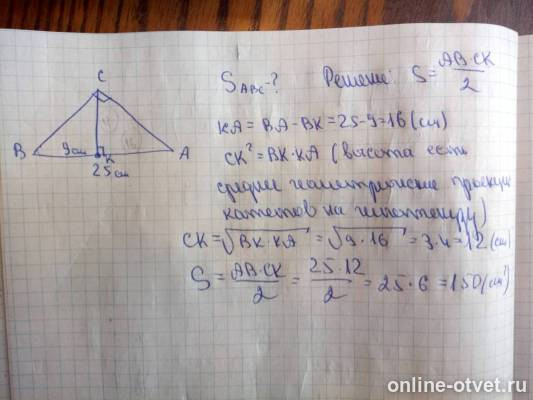 C
B
9см
K
A
25 см
S ABC - ?
Решение: S = AB·CK / 2
KA = BA - BK = 25-9=16 (см)
CK² = BK·KA (высота есть
среднее геометрическое проекций
катетов на гипотенузу)
CK = √BK·KA = √9·16 = 3·4=12 (см)
S = AB·CK / 2 = 25·12 / 2 = 25·6 = 150 (см²)
online-otvet.ru